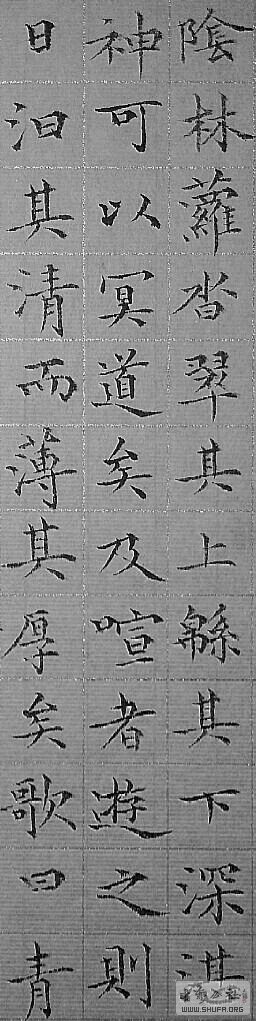 陰林蘿沓翠其上緜其下深湛
神可以冥道矣及喧者遊之則
日汩其清而薄其厚矣歌曰青
WWW.SHUFA.ORG